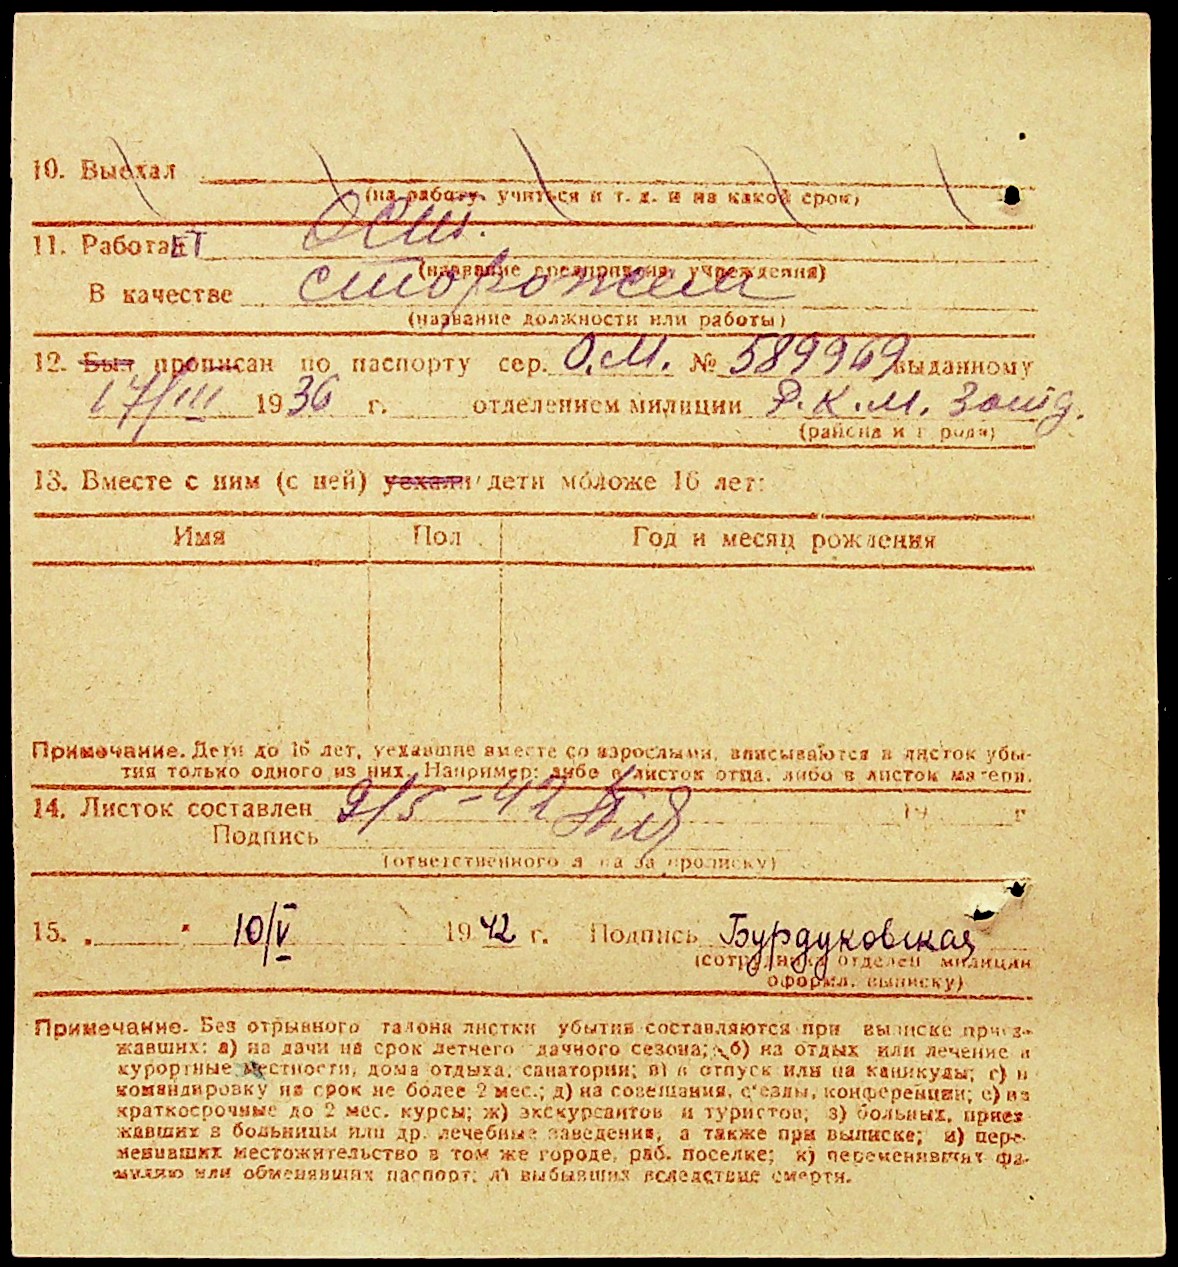 10. Выехал
(на работу, учиться и т. д. и на какой срок)
11. РаботаЕТ ОСШ.
(название предприятия, учреждения)
В качестве сторожем
(название должности или работы)
12. Был прописан по паспорту сер. О.М. № 589969 выданному
17/III 1936 г. отделением милиции Р.К.М.
(района и города)
13. Вместе с ним (с ней) уехали дети моложе 16 лет:
Имя Пол Год и месяц рождения
Примечание. Дети до 16 лет, уехавшие вместе со взрослыми, вписываются в листок убы-
тия только одного из них. Например: либо в листок отца, либо в листок матери.
14. Листок составлен 9/5-42 19 г
Подпись
(ответственного за прописку)
15. 10/V 1942 г. Подпись Бурдуковская
(сотрудника отделен милиции
оформл. выписку)
Примечание. Без отрывного талона листки убытия составляются при выписке приез-
жавших: а) на дачи на срок летнего дачного сезона; б) на отдых или лечение в
курортные местности, дома отдыха, санатории; в) в отпуск или на каникулы; г) в
командировку на срок не более 2 мес.; д) на совещания, съезды, конференции; е) на
краткосрочные до 2 мес. курсы; ж) экскурсантов и туристов; з) больных, приез
жавших в больницы или др. лечебные заведения, а также при выписке; и) пере-
менивших местожительство в том же городе, раб. поселке; к) переменивших фа-
милию или обменявших паспорт; л) выбывших вследствие смерти.